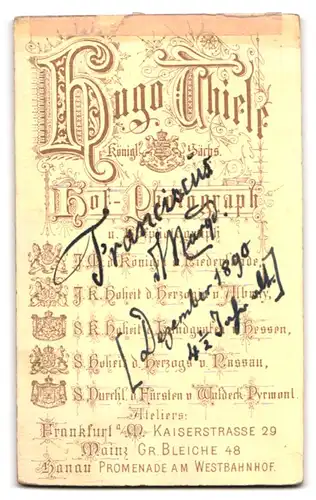 Hugo Thiele
Königl. Sächs.
Hof-Photograph
Franciscus
I. M. d. Königin d. Niederlande,
J. K. Hoheit d. Herzogin v. Albany,
[Dezember 1890
S. K. Hoheit d. Landgrafen v. Hessen,
S. Hoheit d. Herzogs v. Nassau,
S. Durchl. d. Fürsten v. Waldeck Pyrmont.
Ateliers:
Frankfurt a/M. KAISERSTRASSE 29
Mainz GR. BLEICHE 48
Hanau PROMENADE AM WESTBAHNHOF.